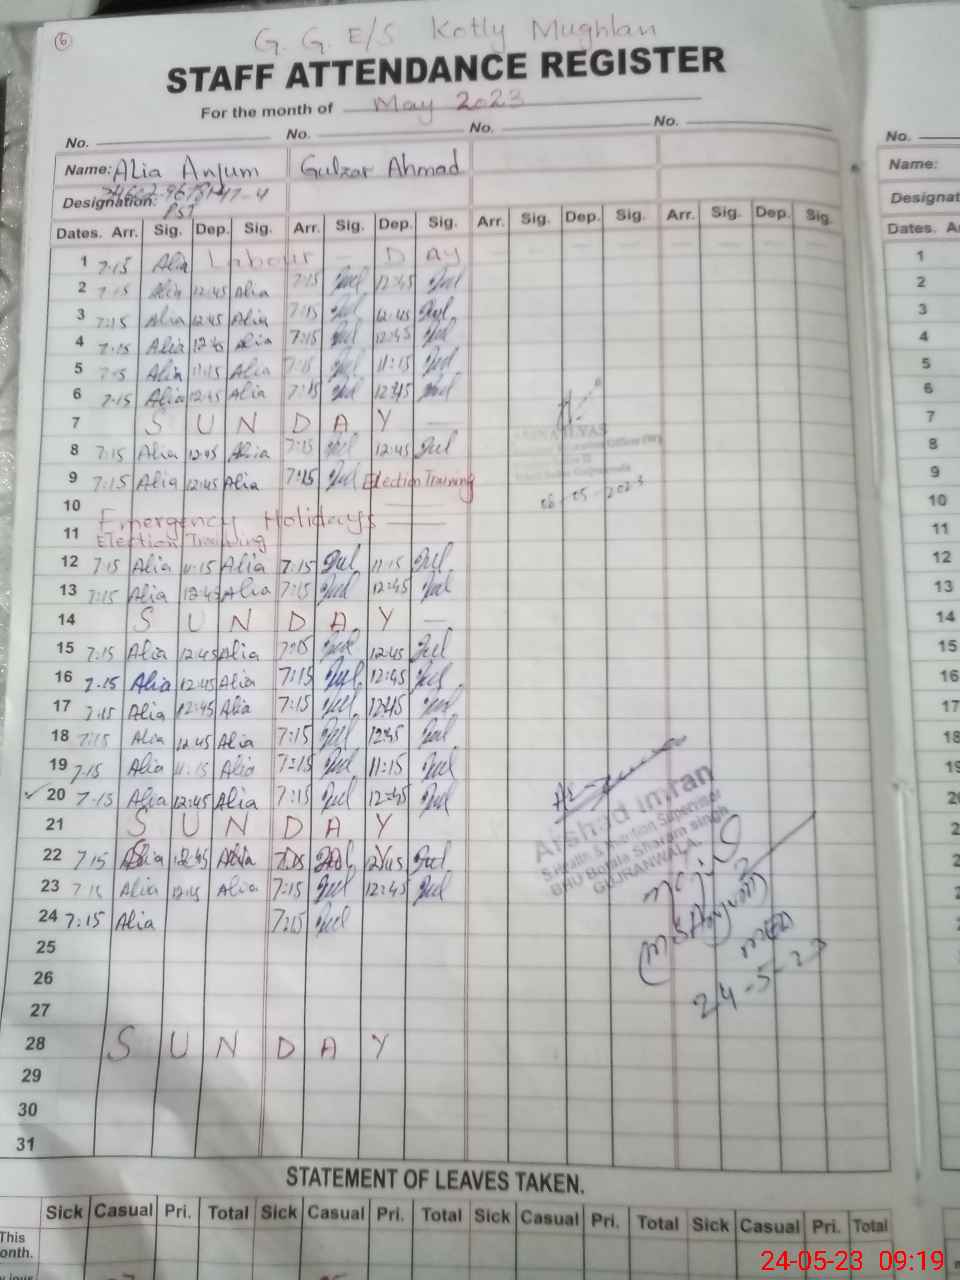 6
G. G. E/S Kotly Mughlan
STAFF ATTENDANCE REGISTER
For the month of May 2023
No. No. No. No. No.
Name: Alia Anjum Gulzar Ahmad Name:
Designation: PST Designat
Dates. Arr. Sig. Dep. Sig. Arr. Sig. Dep. Sig. Arr. Sig. Dep. Sig. Arr. Sig. Dep. Sig. Dates. A
1 7:15 Alia Labour - D AY 1
2 7:15 Alia 12:45 Alia 7:15 Gul 12:45 Gul 2
3 7:15 Alia 12:45 Alia 7:15 Gul 12:45 Gul 3
4 7:15 Alia 12:45 Alia 7:15 Gul 12:45 Gul 4
5 7:15 Alia 11:15 Alia 7:15 Gul 11:15 Gul 5
6 7:15 Alia 12:45 Alia 7:15 Gul 12:45 Gul 6
7 S U N D A Y 7
8 7:15 Alia 12:45 Alia 7:15 Gul 12:45 Gul 8
9 7:15 Alia 12:45 Alia 7:15 Gul Election Training 9
08-05-2023
10 Emergency Holidays 10
11 Election Training 11
12 7:15 Alia 11:15 Alia 7:15 Gul 11:15 Gul 12
13 7:15 Alia 12:45 Alia 7:15 Gul 12:45 Gul 13
14 S U N D A Y 14
15 7:15 Alia 12:45 Alia 7:15 Gul 12:45 Gul 15
16 7:15 Alia 12:45 Alia 7:15 Gul 12:45 Gul 16
17 7:15 Alia 12:45 Alia 7:15 Gul 12:45 Gul 17
18 7:15 Alia 12:45 Alia 7:15 Gul 12:45 Gul 18
19 7:15 Alia 11:15 Alia 7:15 Gul 11:15 Gul 19
20 7:15 Alia 12:45 Alia 7:15 Gul 12:45 Gul
21 S U N D A Y
22 7:15 Alia 12:45 Alia 7:15 Gul 12:45 Gul
23 7:15 Alia 12:45 Alia 7:15 Gul 12:45 Gul
24 7:15 Alia 7:15 Gul
Arshad Imran
S.Health & Nutrition Supervisor
BHU Botala Sharam singh
GUJRANWALA.
24-5-23
25
26
27
28 S U N D A Y
29
30
31
STATEMENT OF LEAVES TAKEN.
Sick Casual Pri. Total Sick Casual Pri. Total Sick Casual Pri. Total Sick Casual Pri. Total
This
onth.
24-05-23 09:19